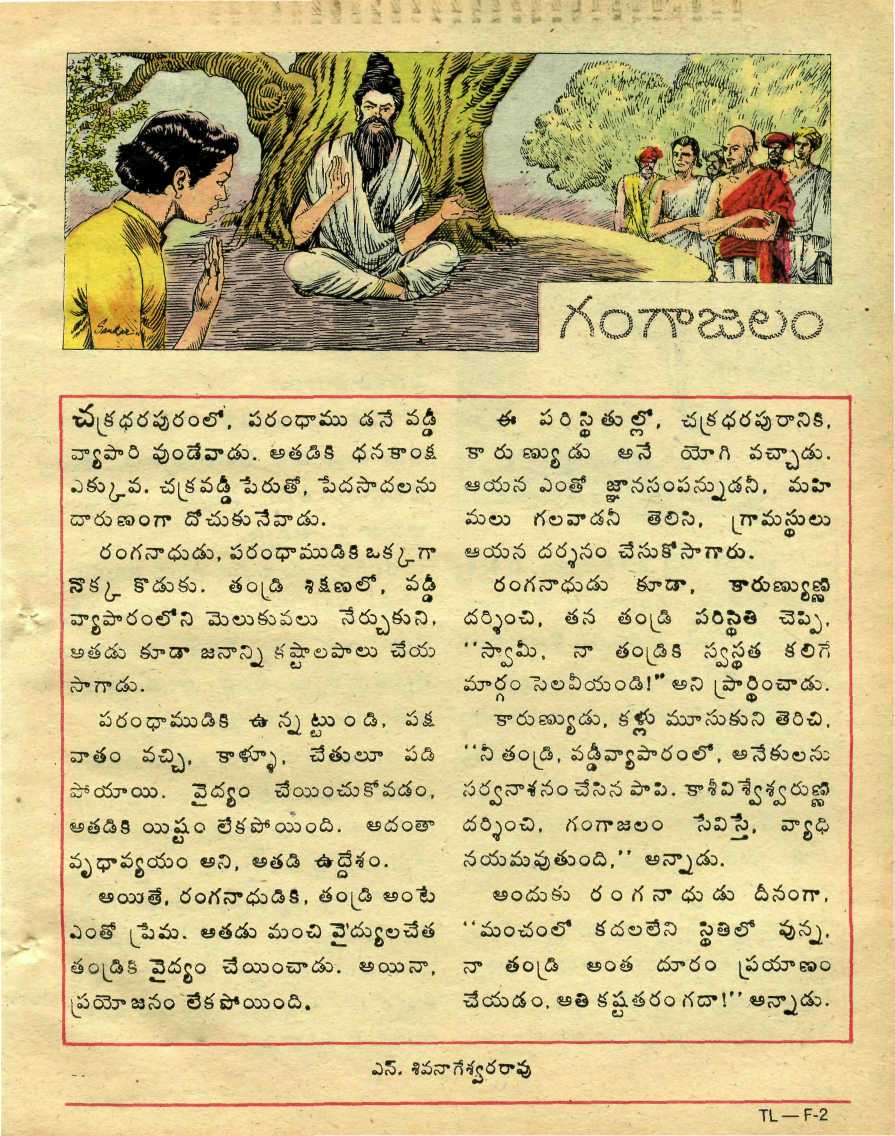 Sankar
గంగాజలం
చక్రధరపురంలో, పరంధాము డనే వడ్డీ
వ్యాపారి వుండేవాడు. అతడికి ధనకాంక్ష
ఎక్కువ. చక్రవడ్డీ పేరుతో, పేదసాదలను
దారుణంగా దోచుకునేవాడు.
రంగనాధుడు, పరంధాముడికి ఒక్కగా
నొక్క కొడుకు. తండ్రి శిక్షణలో, వడ్డీ
వ్యాపారంలోని మెలుకువలు నేర్చుకుని,
అతడు కూడా జనాన్ని కష్టాలపాలు చేయ
సాగాడు.
పరంధాముడికి ఉన్నట్టుండి, పక్ష
వాతం వచ్చి, కాళ్ళూ, చేతులూ పడి
పోయాయి. వైద్యం చేయించుకోవడం,
అతడికి యిష్టం లేకపోయింది. అదంతా
వృధావ్యయం అని, అతడి ఉద్దేశం.
అయితే, రంగనాధుడికి, తండ్రి అంటే
ఎంతో ప్రేమ. అతడు మంచి వైద్యులచేత
తండ్రికి వైద్యం చేయించాడు. అయినా,
ప్రయోజనం లేకపోయింది.
ఈ పరిస్థితుల్లో, చక్రధరపురానికి,
కారుణ్యుడు అనే యోగి వచ్చాడు.
ఆయన ఎంతో జ్ఞానసంపన్నుడనీ, మహి
మలు గలవాడనీ తెలిసి, గ్రామస్థులు
ఆయన దర్శనం చేసుకోసాగారు.
రంగనాధుడు కూడా, కారుణ్యుణ్ణి
దర్శించి, తన తండ్రి పరిస్థితి చెప్పి,
‘‘స్వామీ, నా తండ్రికి స్వస్థత కలిగే
మార్గం సెలవీయండి!’’ అని ప్రార్థించాడు.
కారుణ్యుడు, కళ్లు మూసుకుని తెరిచి,
‘‘నీ తండ్రి, వడ్డీవ్యాపారంలో, అనేకులను
సర్వనాశనంచేసిన పాపి. కాశీవిశ్వేశ్వరుణ్ణి
దర్శించి, గంగాజలం సేవిస్తే, వ్యాధి
నయమవుతుంది,’’ అన్నాడు.
అందుకు రంగనాధుడు దీనంగా,
‘‘మంచంలో కదలలేని స్థితిలో వున్న,
నా తండ్రి అంత దూరం ప్రయాణం
చేయడం, అతి కష్టతరం గదా!’’ అన్నాడు.
ఎస్. శివనాగేశ్వరరావు
TL — F-2